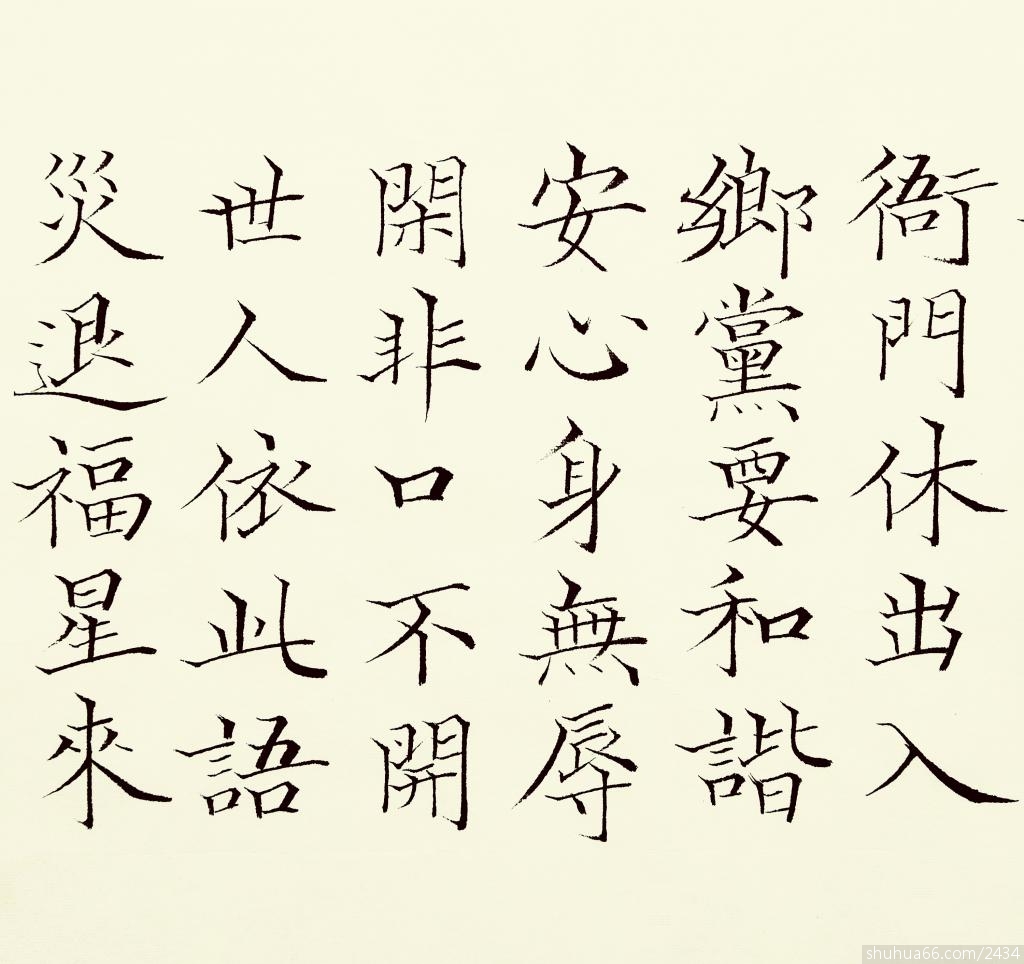 衙門休出入
鄉黨要和諧
安心身無辱
閑非口不開
世人依此語
災退福星來
shuhua66.com/2434